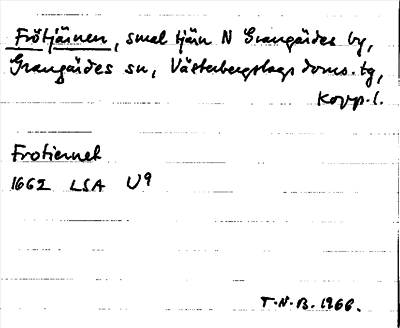 Frötjärnen, smal tjärn N Grangärdes by,
Grangärdes sn, Västerbergslags doms. tg,
Kopp. l.
Frotiernek
1662 LSA U9
T.N.B. 1966.